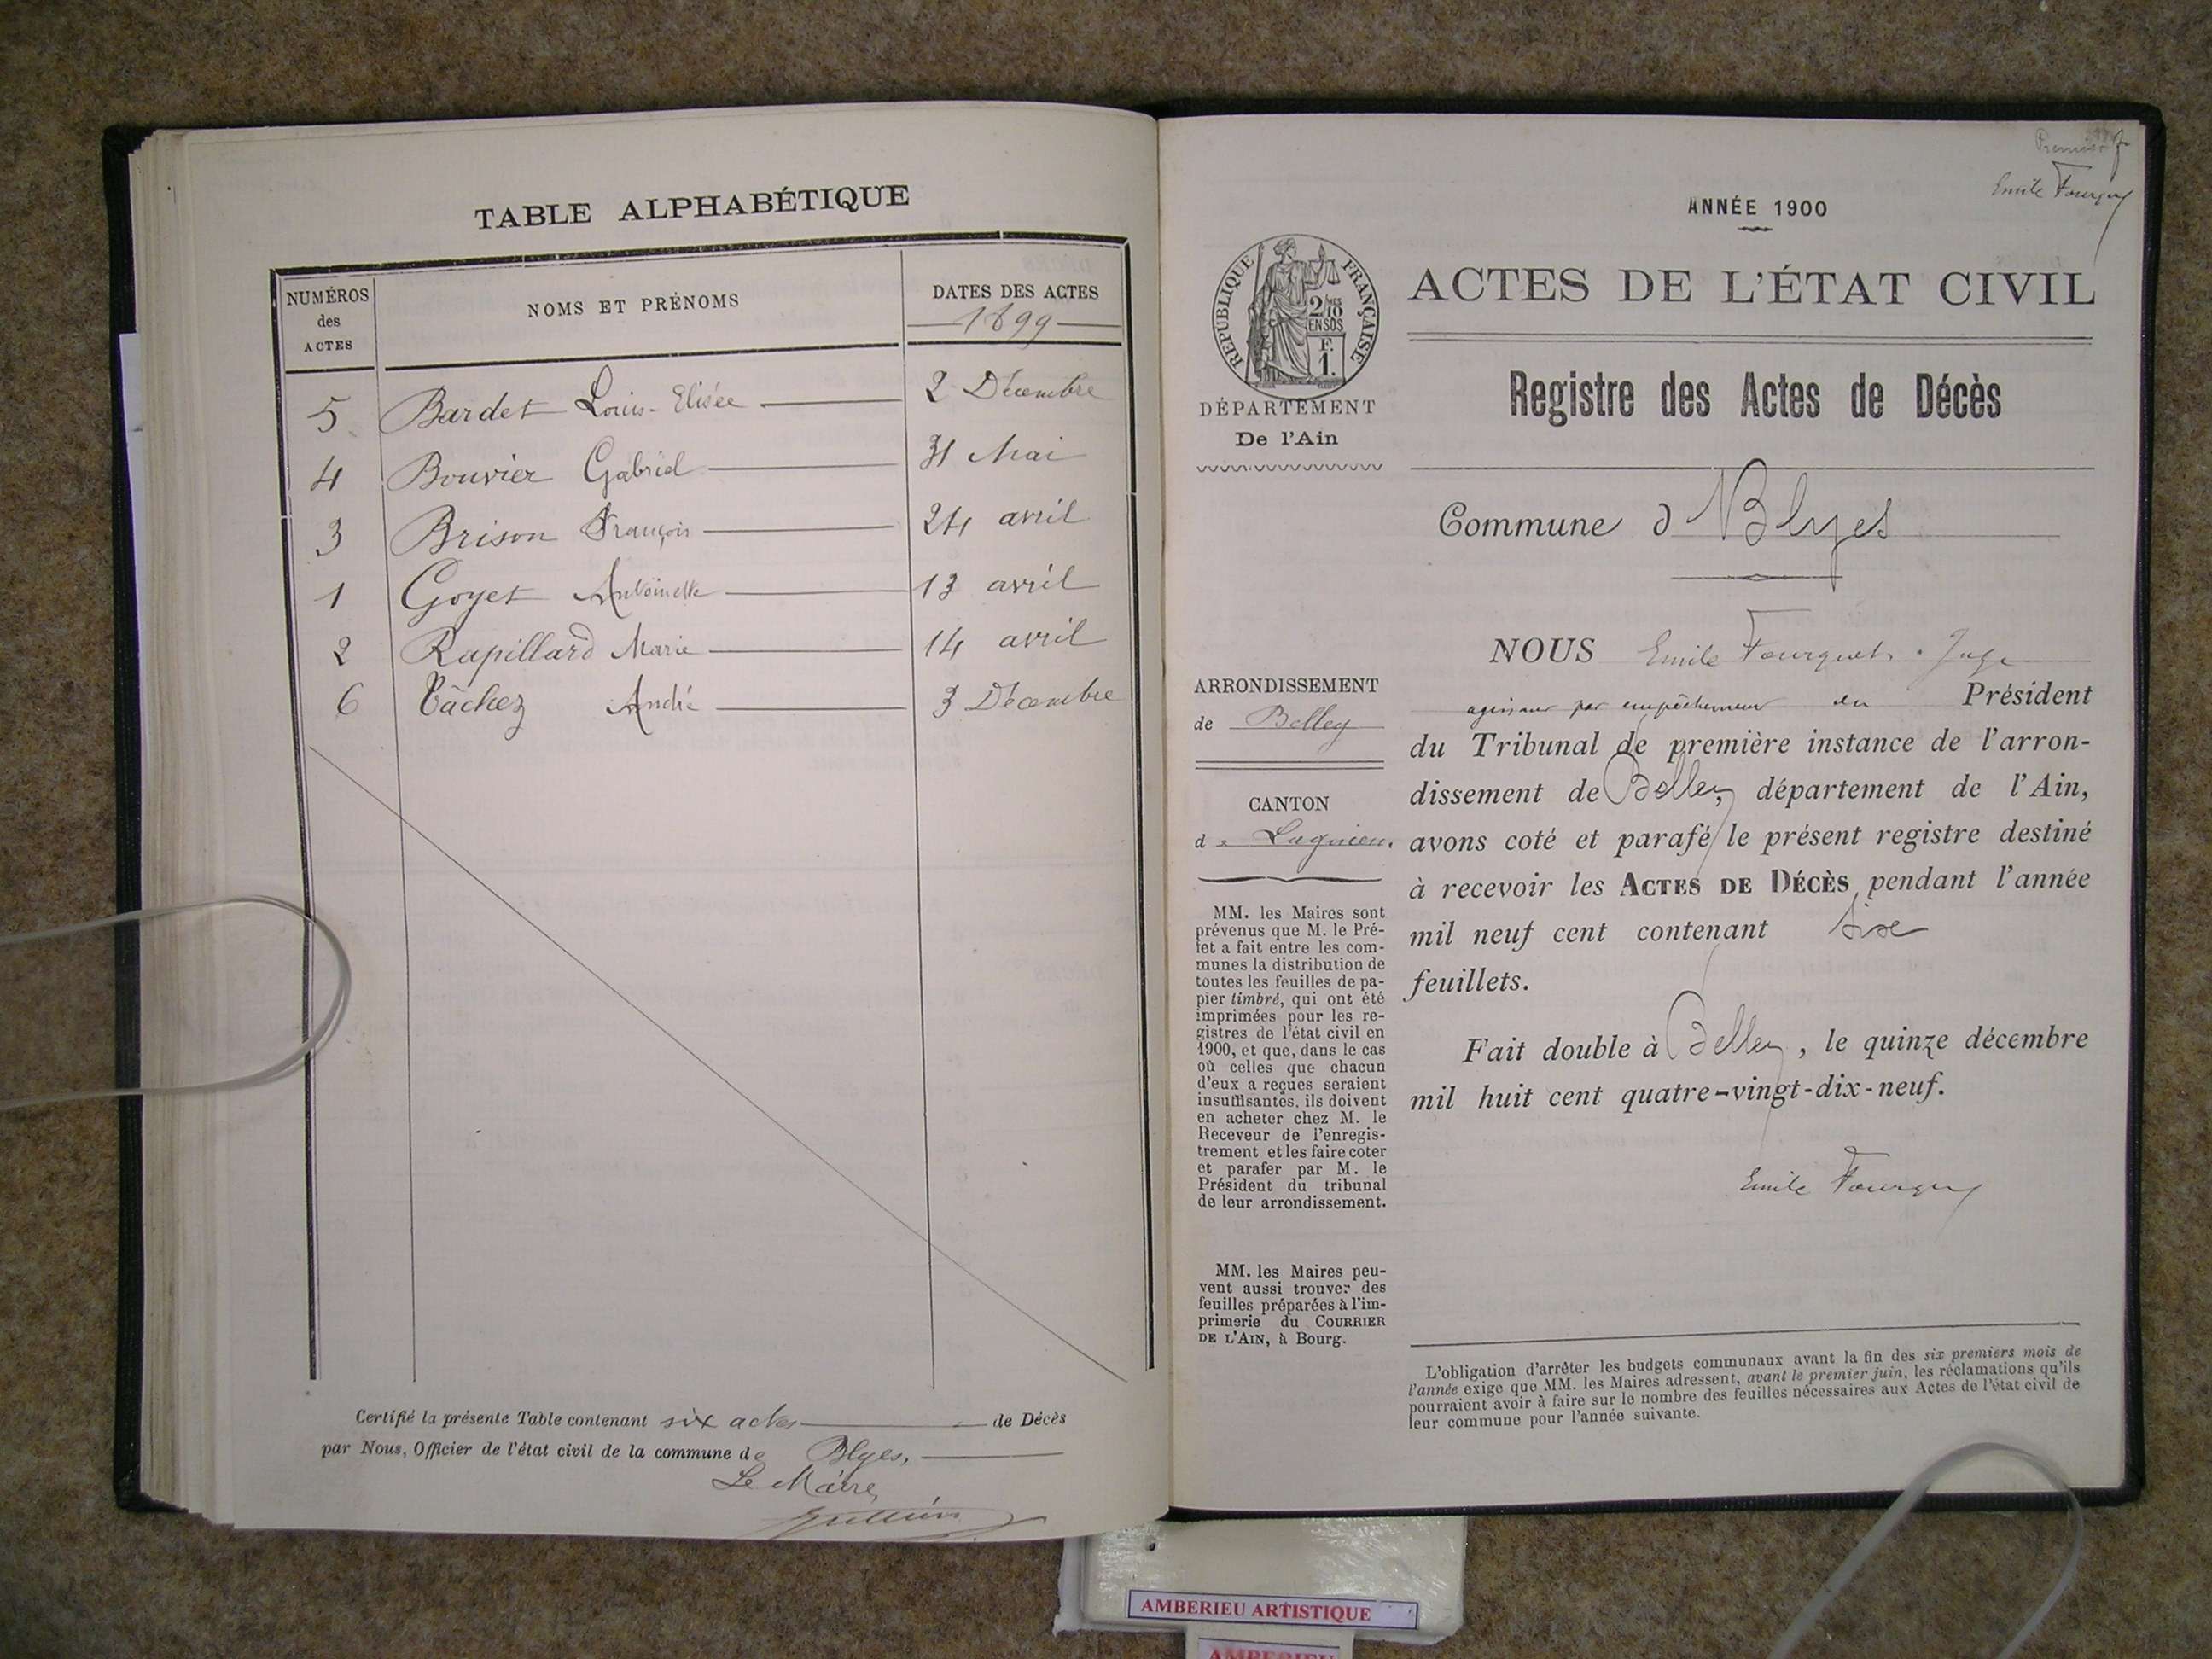 TABLE ALPHABÉTIQUE
NUMÉROS des ACTES
NOMS ET PRÉNOMS
DATES DES ACTES
1899
5 Bardet Louis-Elisée 2 Décembre
4 Bouvier Gabriel 31 Mai
3 Brison François 24 avril
1 Goyet Antoinette 13 avril
2 Rapillard Marie 14 avril
6 Tâchez André 3 Décembre
Certifié la présente Table contenant six actes de Décès
par Nous, Officier de l'état civil de la commune de Blyes,
Le Maire,
Premier
Emile Fourquet
ANNÉE 1900
RÉPUBLIQUE FRANÇAISE
2/10
EN SUS
F.
1.
DÉPARTEMENT
De l'Ain
ACTES DE L'ÉTAT CIVIL
Registre des Actes de Décès
Commune d Blyes
ARRONDISSEMENT
de Belley
CANTON
de Lagnieu.
MM. les Maires sont
prévenus que M. le Pré-
fet a fait entre les com-
munes la distribution de
toutes les feuilles de pa-
pier timbré, qui ont été
imprimées pour les re-
gistres de l'état civil en
1900, et que, dans le cas
où celles que chacun
d'eux a reçues seraient
insuffisantes, ils doivent
en acheter chez M. le
Receveur de l'enregis-
trement et les faire coter
et parafer par M. le
Président du tribunal
de leur arrondissement.
MM. les Maires peu-
vent aussi trouver des
feuilles préparées à l'im-
primerie du COURRIER
DE L'AIN, à Bourg.
NOUS Emile Fourquet, Juge
agissant par empêchement du Président
du Tribunal de première instance de l'arron-
dissement de Belley, département de l'Ain,
avons coté et parafé le présent registre destiné
à recevoir les ACTES DE DÉCÈS pendant l'année
mil neuf cent contenant six
feuillets.
Fait double à Belley, le quinze décembre
mil huit cent quatre-vingt-dix-neuf.
Emile Fourquet
L'obligation d'arrêter les budgets communaux avant la fin des six premiers mois de
l'année exige que MM. les Maires adressent, avant le premier juin, les réclamations qu'ils
pourraient avoir à faire sur le nombre des feuilles nécessaires aux Actes de l'état civil de
leur commune pour l'année suivante.
AMBERIEU ARTISTIQUE
AMBERIEU